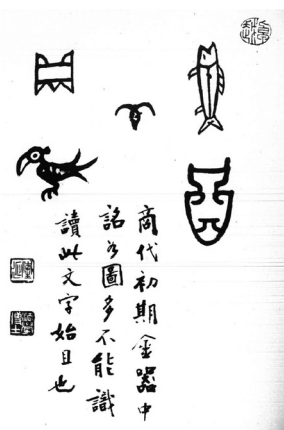 商代初期金器中
詺各圖多不能識
讀此文字始且也